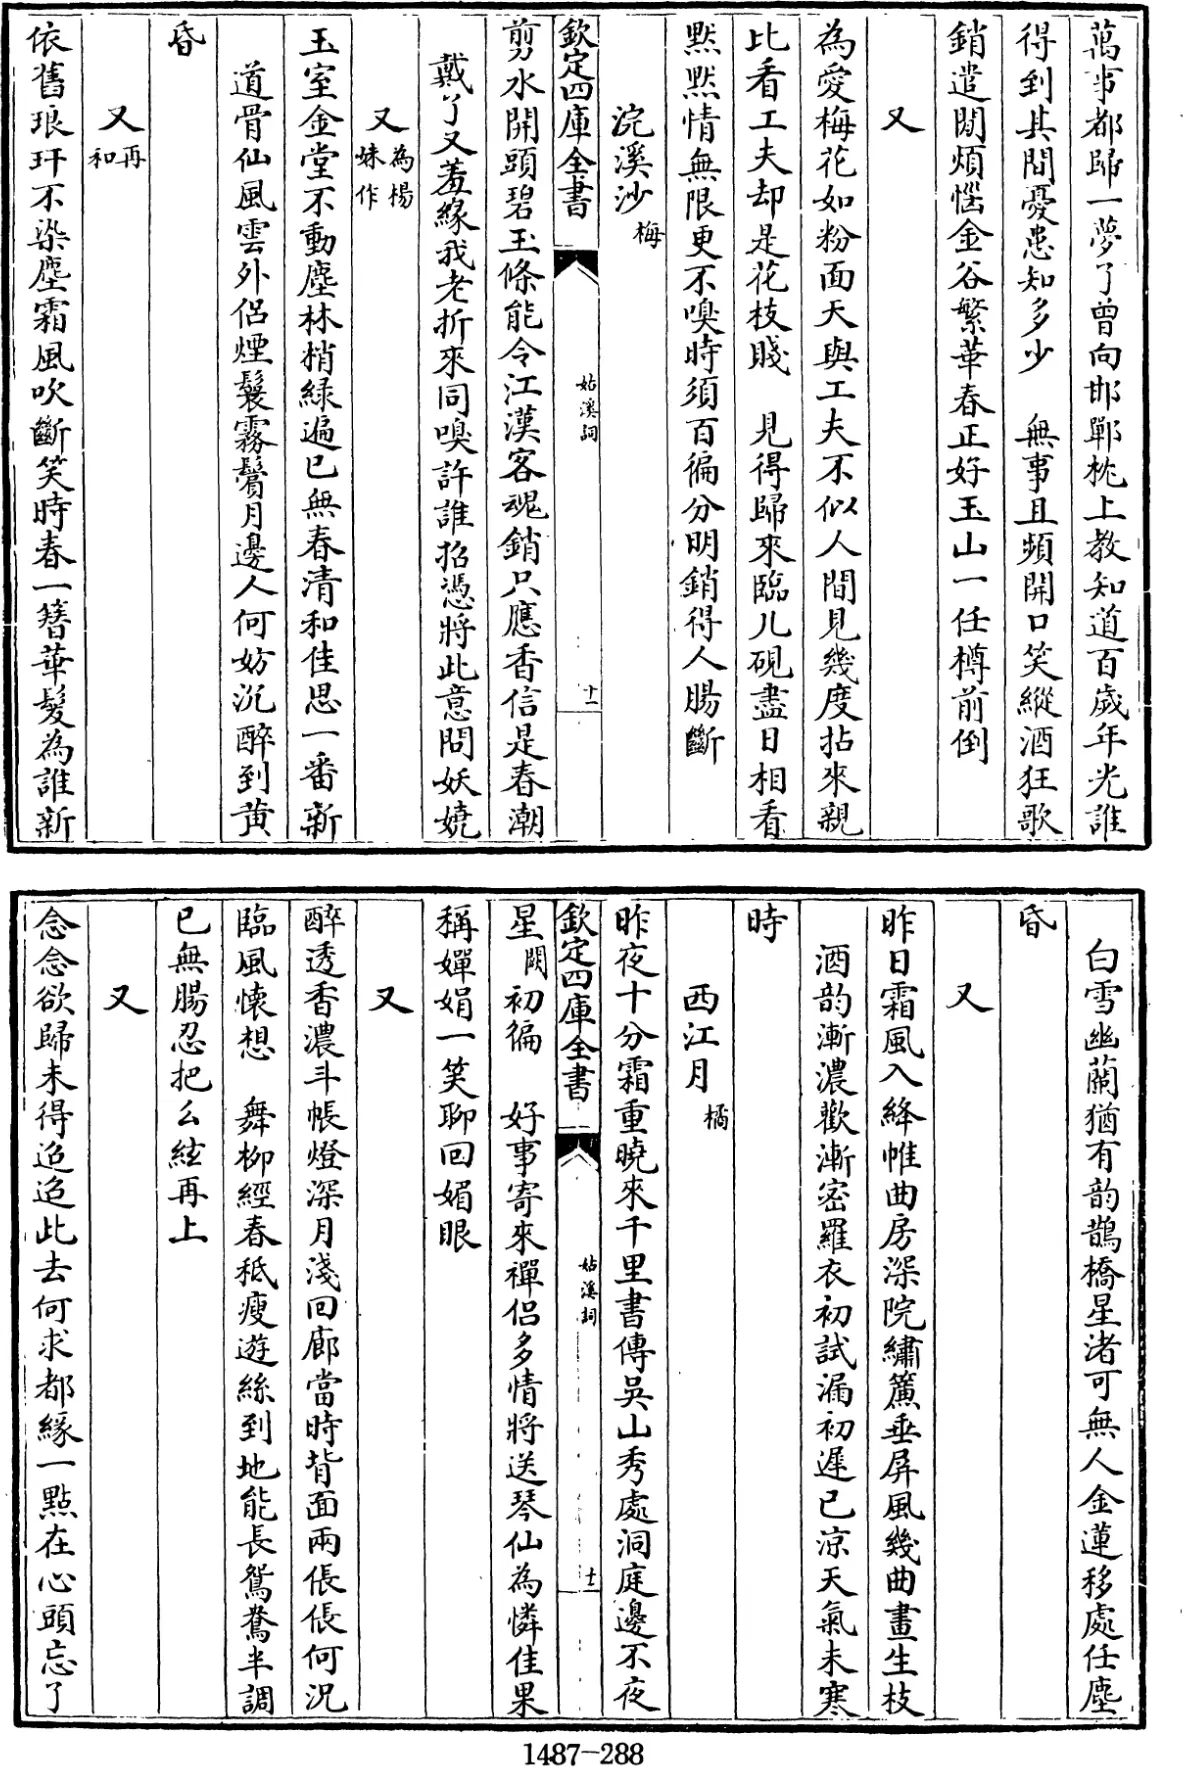 萬事都歸一夢了曾向邯鄲枕上教知道百歲年光誰
得到其間憂患知多少　無事且頻開口笑縱酒狂歌
銷遣閒煩惱金谷繁華春正好玉山一任樽前倒
又
為愛梅花如粉面天與工夫不似人間見幾度拈來親
比看工夫却是花枝賤　見得歸來臨几硯盡日相看
默默情無限更不嗅時須百徧分明銷得人腸斷
浣溪沙梅
欽定四庫全書
姑溪詞
十一
剪水開頭碧玉條能令江漢客魂銷只應香信是春潮
戴了又羞緣我老折來同嗅許誰招憑將此意問妖嬈
又為楊姝作
玉室金堂不動塵林梢綠遍已無春清和佳思一番新
道骨仙風雲外侶煙鬟霧鬢月邊人何妨沉醉到黄
昏
又再和
依舊琅玕不染塵霜風吹斷笑時春一簪華髮為誰新
白雪幽蘭猶有韵鵲橋星渚可無人金蓮移處任塵
昏
又
昨日霜風入絳帷曲房深院繡簾垂屏風幾曲畫生枝
酒韵漸濃歡漸密羅衣初試漏初遲已涼天氣未寒
時
西江月橘
昨夜十分霜重曉來千里書傳吳山秀處洞庭邊不夜
欽定四庫全書
姑溪詞
十一
星闕初徧　好事寄來禪侶多情將送琴仙為憐佳果
稱嬋娟一笑聊回媚眼
又
醉透香濃斗帳燈深月淺回廊當時背面兩倀倀何況
臨風懷想　舞柳經春秪瘦遊絲到地能長鴛鴦半調
已無腸忍把么絃再上
又
念念欲歸未得迢迢此去何求都緣一點在心頭忘了
1487-288